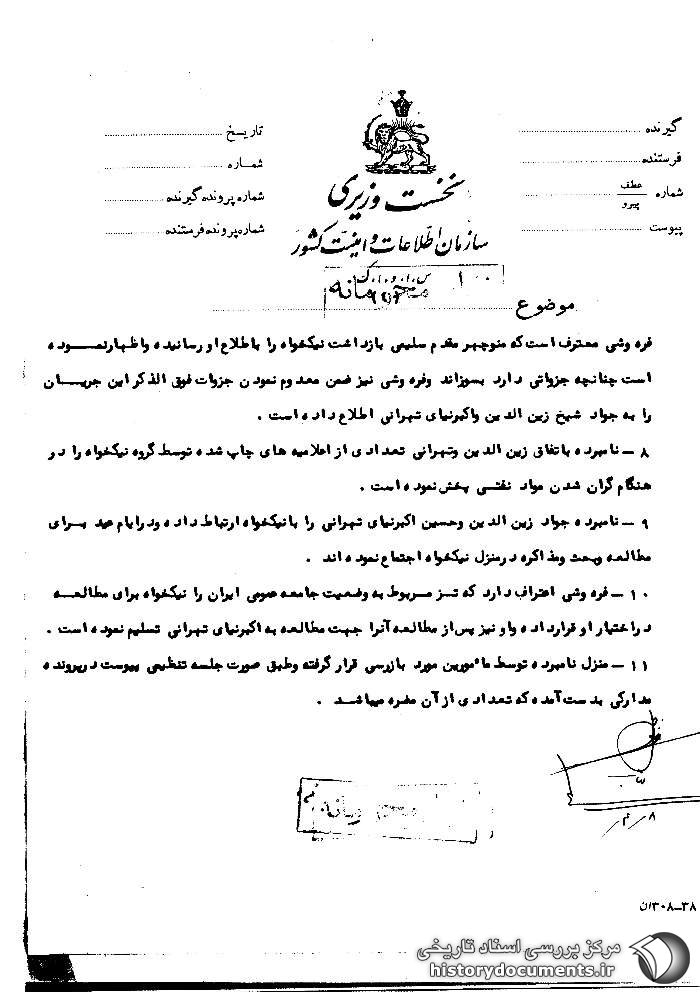 گیرنده
فرستنده
شماره عطف پیرو
پیوست
تاریخ
شماره
شماره پرونده گیرنده
شماره پرونده فرستنده
نخست وزیری
سازمان اطلاعات و امنیت کشور
محرمانه
موضوع
فره وشی معترف است که منوچهر مقدم سلیمی بازداشت نیکخواه را باطلاع او رسانیده واظهار نموده
است چنانچه جزواتی دارد بسوزاند وفره وشی نیز ضمن معدوم نمودن جزوات فوق الذکر این جریان
را به جواد شیخ زین الدین واکبرنیای تهرانی اطلاع داده است .
۸ – نامبرده باتفاق زین الدین وتهرانی تعدادی از اعلامیه های چاپ شده توسط گروه نیکخواه را در
هنگام گران شدن مواد نفتی پخش نموده است .
۹ – نامبرده جواد زین الدین وحسین اکبرنیای تهرانی را بانیکخواه ارتباط داده ودرایام عید برای
مطالعه وبحث ومذاکره درمنزل نیکخواه اجتماع نموده اند .
۱۰ – فره وشی اعتراف دارد که تز مربوط به وضعیت جامعه عمومی ایران را نیکخواه برای مطالعه
دراختیار او قرارداده واو نیز پس از مطالعه آنرا جهت مطالعه به اکبرنیای تهرانی تسلیم نموده است .
۱۱ – منزل نامبرده توسط مأمورین مورد بازرسی قرار گرفته وطبق صورت جلسه تنظیمی پیوست درپرونده
مدارکی بدست آمده که تعدادی از آن مضره میباشد .
محرمانه
۳۸–۳۰۸ان
مرکز بررسی اسناد تاریخی
historydocuments.ir